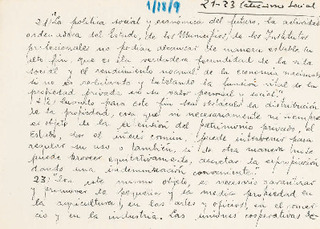 1/18/9
21-23 Catecismo Social
21. "La política social y económica del futuro, la actividad
ordenadora del Estado, de los Municipios, de los Institutos
profesionales no podían alcanzar de manera estable su
alto fin, que es la verdadera fecundidad de la vida
social y el rendimiento normal de la economía nacional,
si no es respetando y tutelando la función vital de la
propiedad privada en su valor personal y social".
22. Cuando para este fin sea obstáculo la distribución
de la propiedad, cosa que ni necesariamente ni siempre
es objeto de la extensión del patrimonio privado, el
Estado, por el interés común, "puede intervenir para
regular su uso o también, si de otra manera no se
puede proveer equitativamente, decretar la expropiación
dando una indemnización conveniente".
23. "Con este mismo objeto, es necesario garantizar
y promover la pequeña y la media propiedad en
la agricultura, en las artes y oficios, en el comer
cio y en la industria. Las uniones cooperativas de-